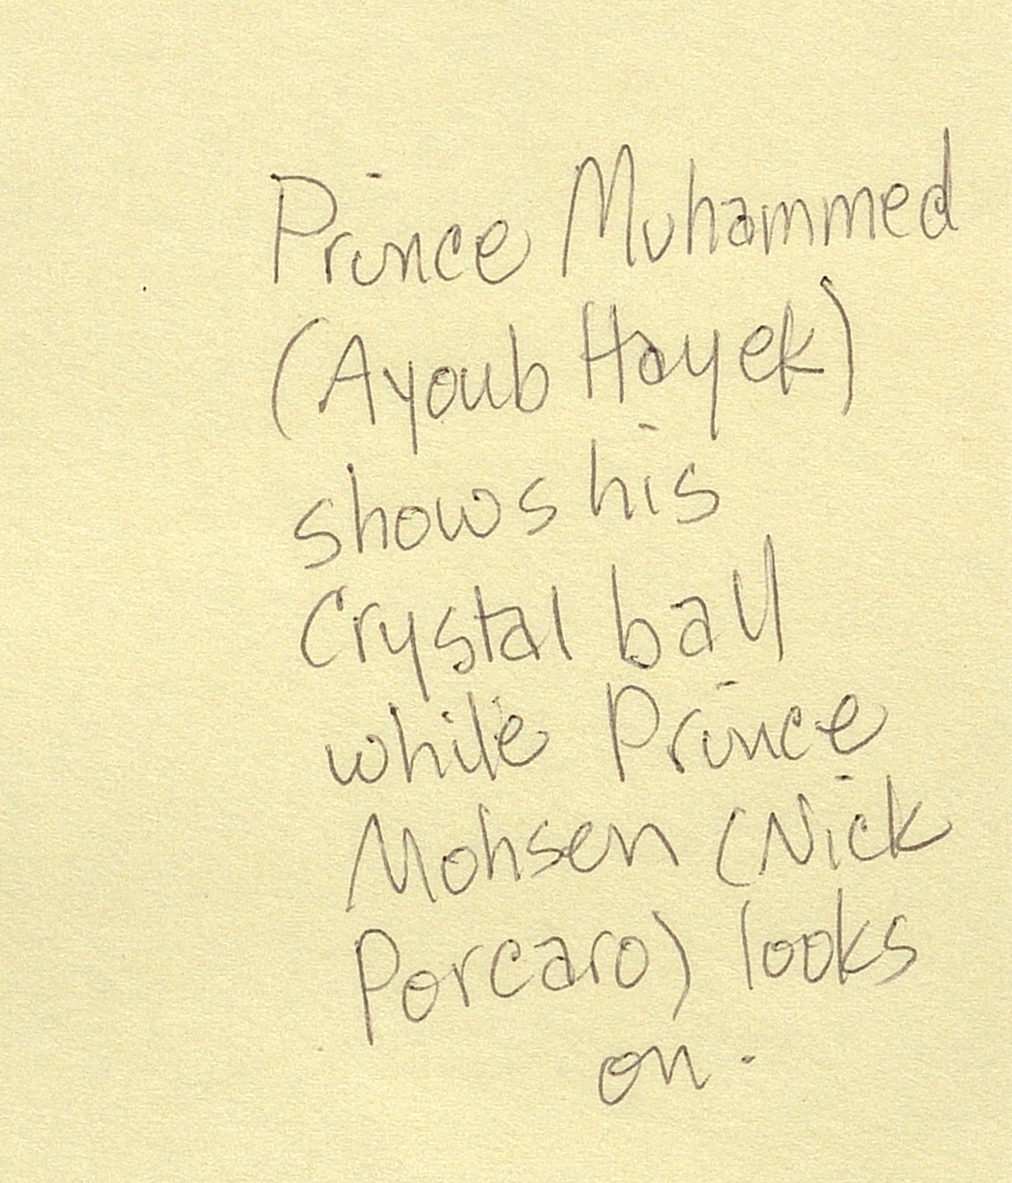 Prince Muhammed
(Ayoub Hayek)
shows his
Crystal ball
while Prince
Mohsen (Nick
Porcaro) looks
on.